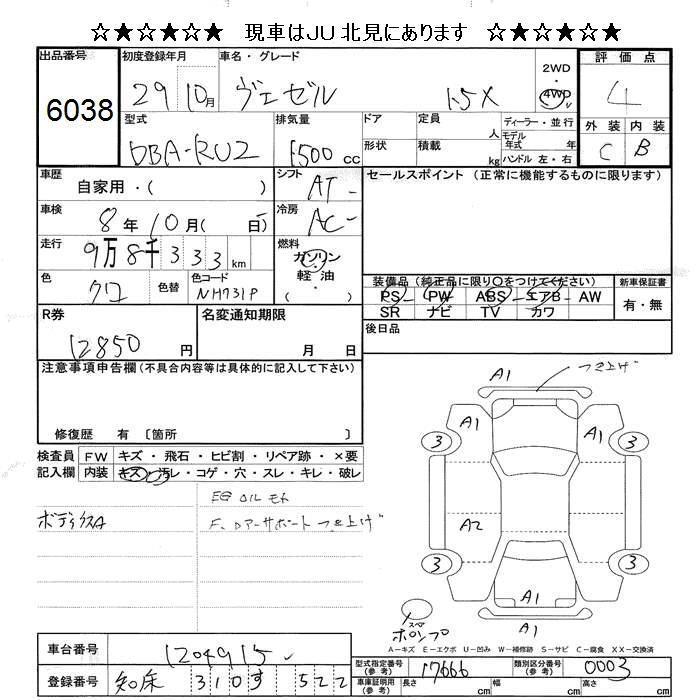 ☆★☆★☆★ 現車はJU北見にあります ☆★☆★☆★
出品番号 初度登録年月 車名・グレード 2WD・4WD 評価点
6038 29 10月 ヴェゼル 1.5X 4
型式 排気量 ドア 定員 人 ディーラー・並行 外装 内装
DBA-RU2 1500 CC 形状 積載 kg モデル年式 年 ハンドル 左・右 C B
車歴 自家用・( ) シフト AT セールスポイント (正常に機能するものに限ります)
車検 8年10月( 日) 冷房 AC
走行 9万8千333km 燃料 ガソリン・軽油 ( )
色 クロ 色替 色コード NH731P
装備品 (純正品に限り○をつけてください) 新車保証書
PS PW ABS エアB AW 有・無
SR ナビ TV カワ
R券 名変通知期限 後日品
12850円 月 日
注意事項申告欄(不具合内容等は具体的に記入して下さい)
修復歴 有 〔箇所 〕
検査員記入欄 FW キズ・飛石・ヒビ割・リペア跡・×要
内装 キズ・汚レ・コゲ・穴・スレ・キレ・破レ
EG オイル モレ
ボディクスA F.Dアーサポート つき上げ
A1 つき上げ
A1 A1
3 3
A2
3 3
A1
A1
スペ
ホ
A-キズ E-エクボ U-凹み W-補修跡 S-サビ C-腐食 XX-交換済
車台番号 1204915
型式指定番号(参考) 17666 類別区分番号(参考) 0003
登録番号 知床 310 す 522
車庫証明用(参考) 長さ cm 幅 cm 高さ cm